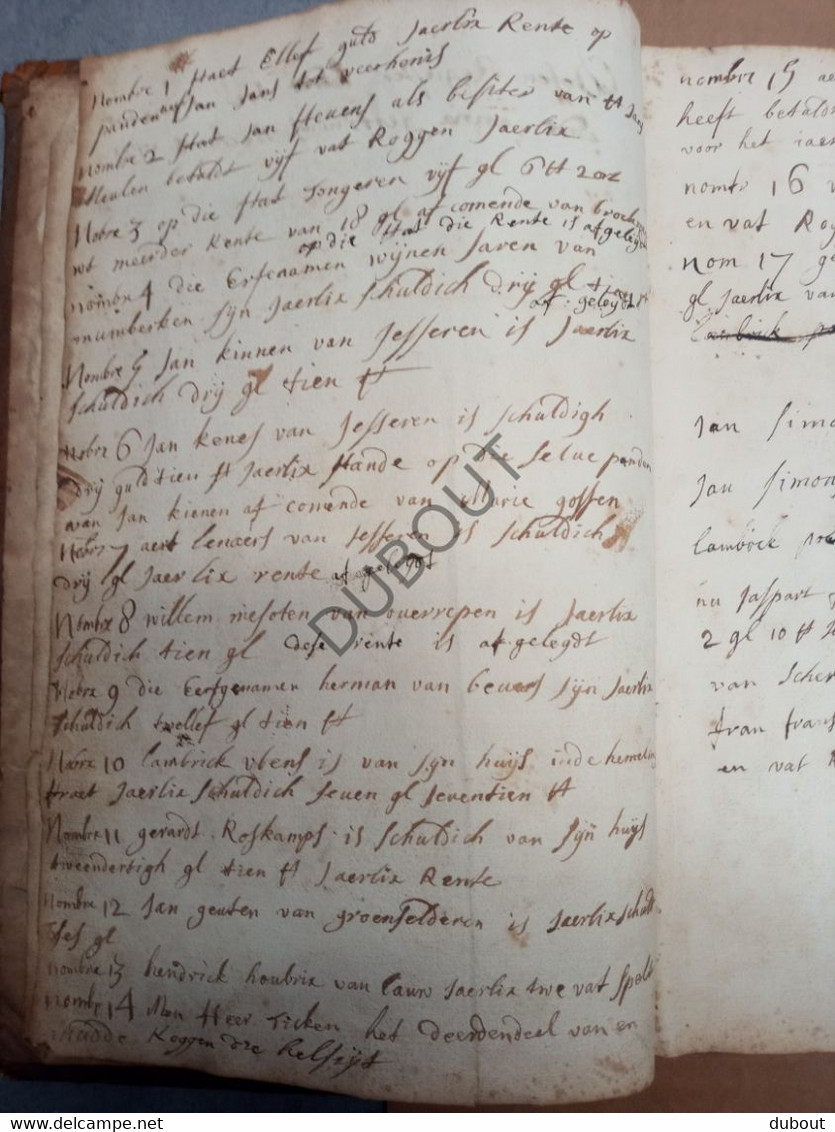 Nombre 1 staet Ellef guld Jaerlix Rente op
panden van Jan Jans tot veerhenis
nombre 2 stat Jan steuens als besitter van tt Jans
Meulen betaldt vijf vat Roggen Jaerlix
Nobre 3 op die stat Tongeren vijf gl 6 tt 2 oz
wt meerder Rente van 18 gl af comende van
op die stat die Rente is af gelegt
nombre 4 die Erfenamen wijnen Jaren van
mumberken sijn Jaerlix schuldich drij gl tien tt
af: gelegdt
Nombre 5 Jan kinnen van Jesseren is Jaerlix
schuldich drij gl tien tt
Nobre 6 Jan kenes van Jesseren is schuldigh
drij guld tien tt Jaerlix stande op die selue panden
van Jan kienen af comende van Marie gossen
Nobre 7 aert lenaers van Jesseren is schuldich
drij gl Jaerlix rente af gelegdt
Nombre 8 willem mesoten van ouerrepen is Jaerlix
schuldich tien gl dese rente is af gelegdt
Nobre 9 die Eerfgenamen herman van beuers sijn Jaerlix
schuldich twellef gl tien tt
Nobre 10 lambrick vbens is van sijn huijs inde hemeling
straet Jaerlix schuldich seuen gl seuentien tt
Nombre 11 gerardt Roskamps is schuldich van sijn huijs
tweendertigh gl tien tt Jaerlix Rente
Nombre 12 Jan geuten van groenselderen is Jaerlix schuld
ses gl
nombre 13 hendrick houbrix van lauw Jaerlix twe vat spelt
nombre 14 Men Heer Ticken het deerdendeel van en
mudde Roggen dre helsijt
nombre 15 ae
heeft betaldt
voor het iaer
nombr 16
en vat Rog
Nom 17 ge
gl Jaerlix van
Jan simo
Jan Simon
lambrick
nu Jaspart
2 gl 10 tt
van Scher
fran frans
en vat
DUBOUT
delcampe.net
dubout